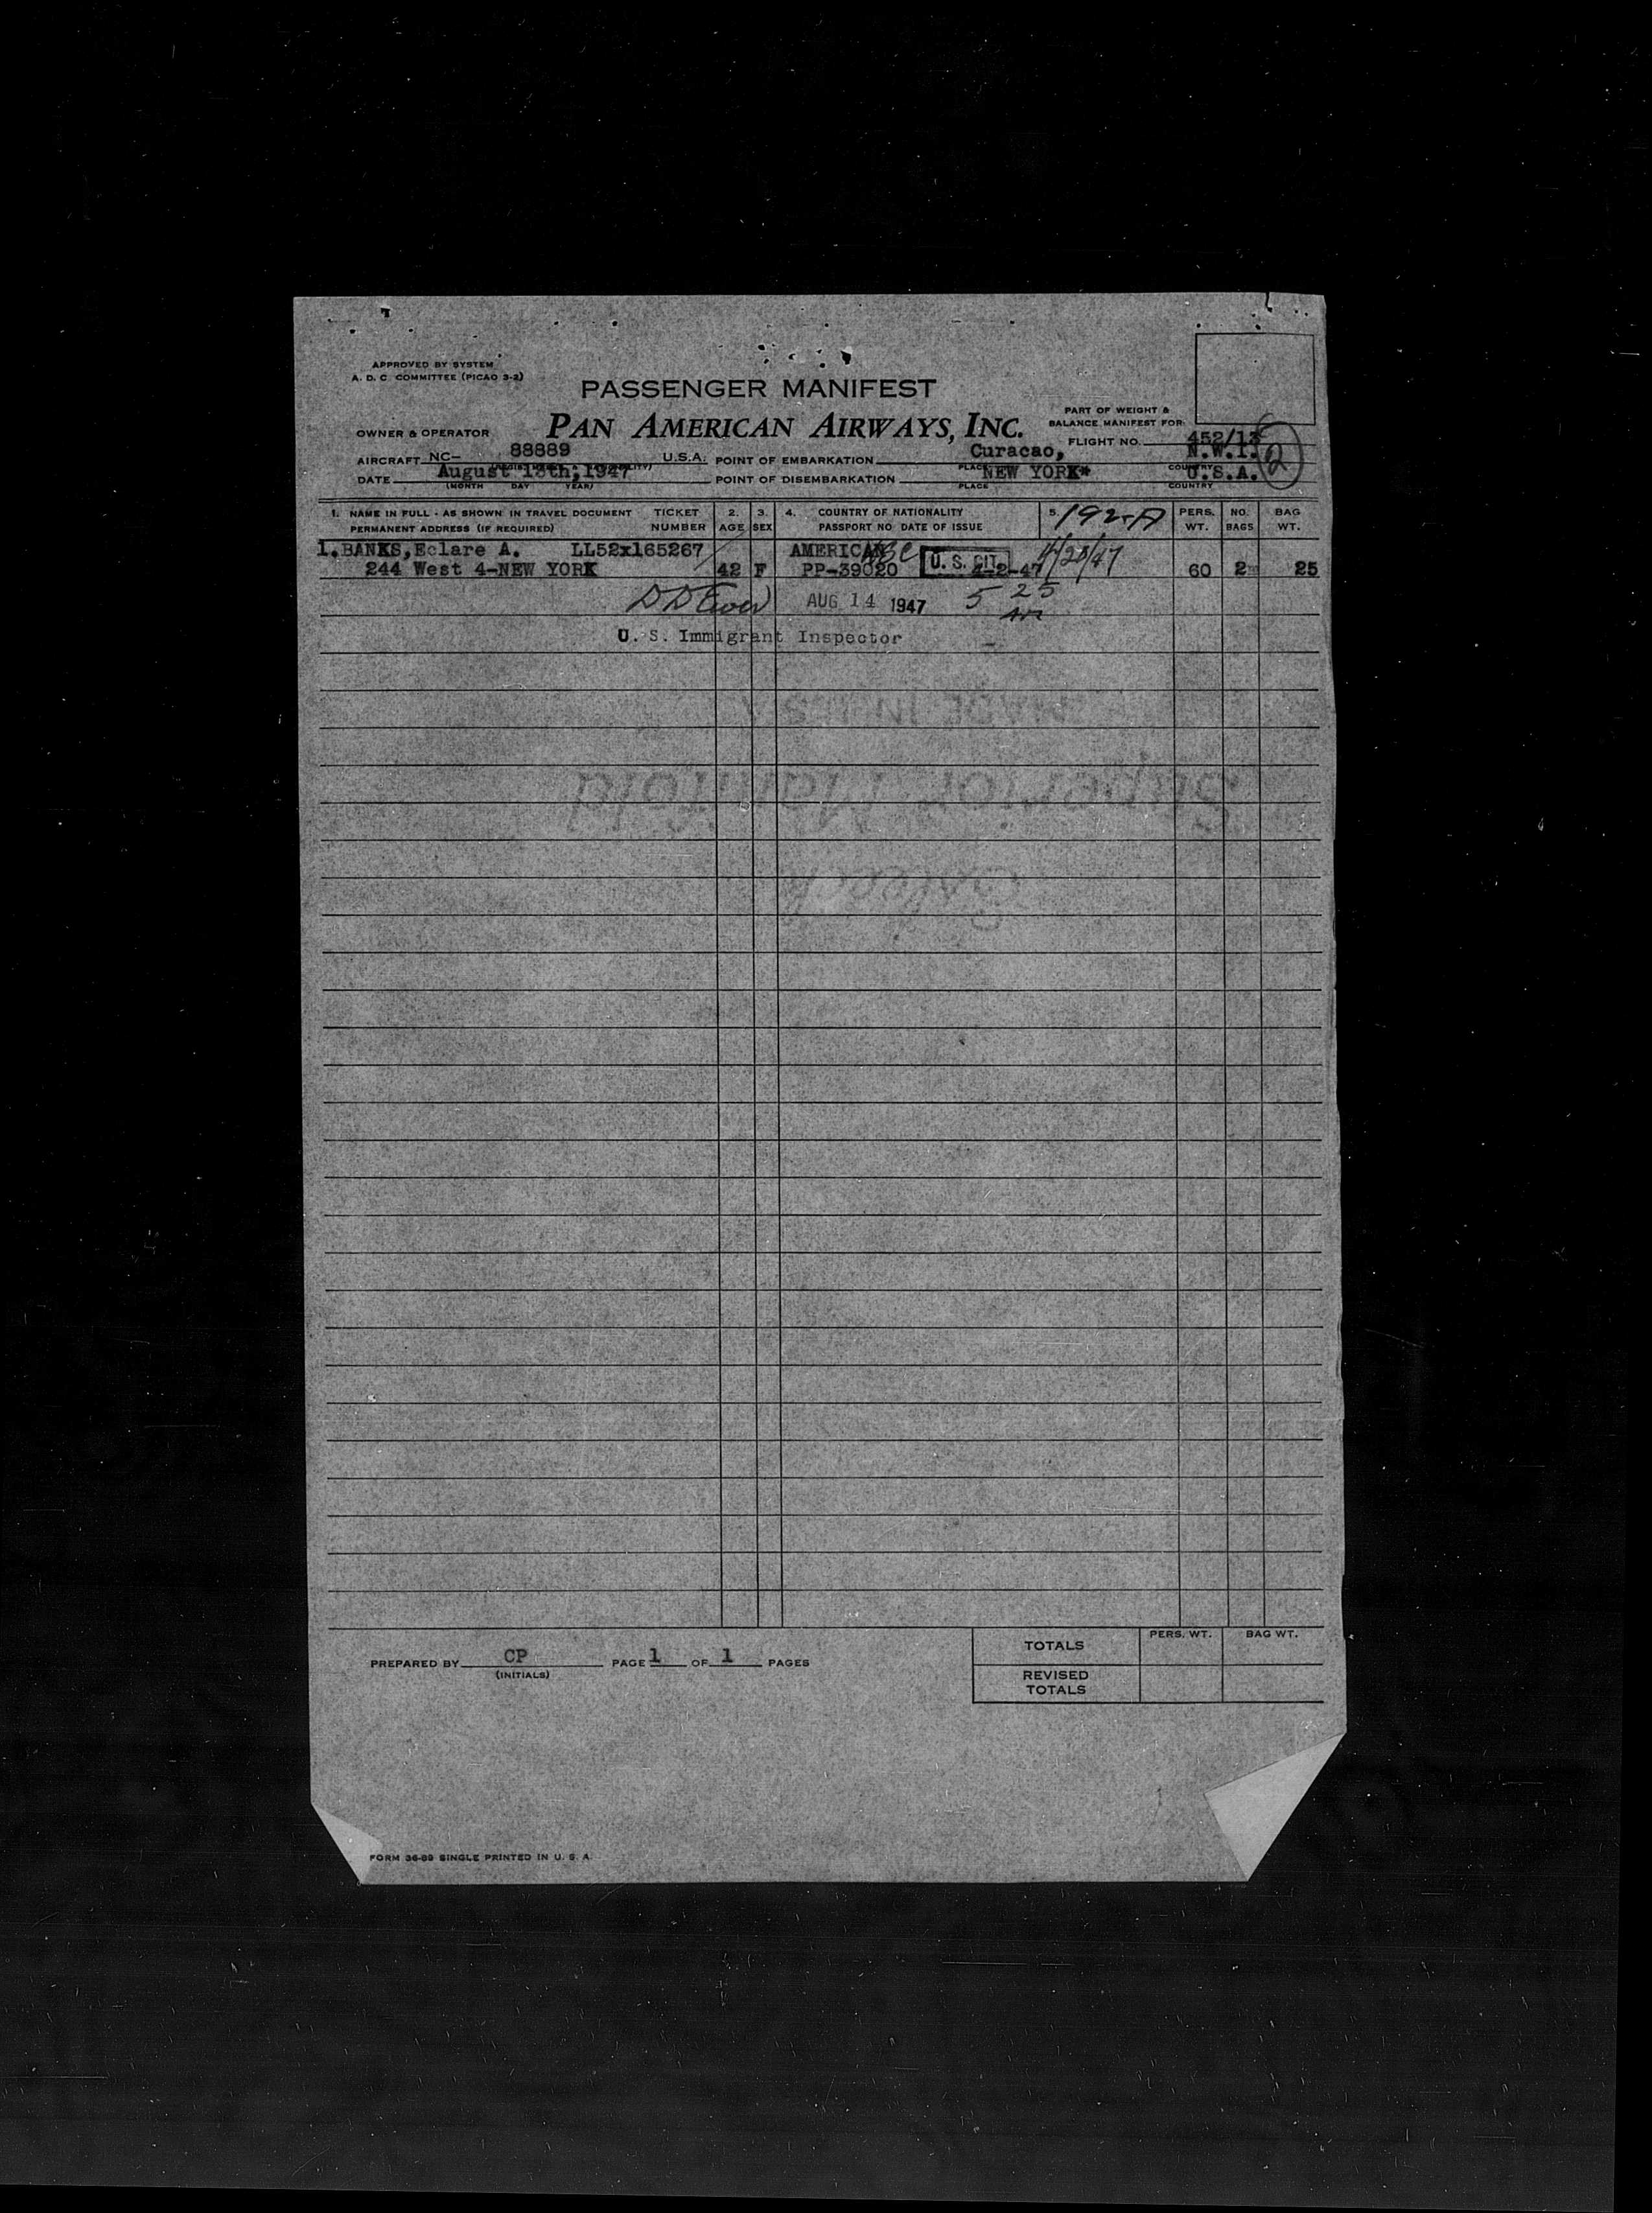 APPROVED BY SYSTEM
A. D. C. COMMITTEE (PICAO 3-2)
PASSENGER MANIFEST
PART OF WEIGHT &
BALANCE MANIFEST FOR
OWNER & OPERATOR PAN AMERICAN AIRWAYS, INC.
FLIGHT NO. 452/13
AIRCRAFT NC- 88889 U.S.A. POINT OF EMBARKATION Curacao, N.W.I. 2
PLACE COUNTRY
DATE August 13th,1947 POINT OF DISEMBARKATION NEW YORK* U.S.A.
(MONTH DAY YEAR) PLACE COUNTRY
1. NAME IN FULL - AS SHOWN IN TRAVEL DOCUMENT TICKET 2. 3. 4. COUNTRY OF NATIONALITY 5. 192-A PERS. NO. BAG
PERMANENT ADDRESS (IF REQUIRED) NUMBER AGE SEX PASSPORT NO. DATE OF ISSUE WT. BAGS WT.
1.BANKS,Eclare A. LL52x165267 AMERICAN U. S. CIT
244 West 4-NEW YORK 42 F PP-39020 4-2-47 60 2 25
AUG 14 1947 5 25
U. S. Immigrant Inspector
MADE IN U S A
Superior Manifold
PREPARED BY CP PAGE 1 OF 1 PAGES
(INITIALS)
PERS. WT. BAG WT.
TOTALS
REVISED
TOTALS
FORM 36-89 SINGLE PRINTED IN U. S. A.